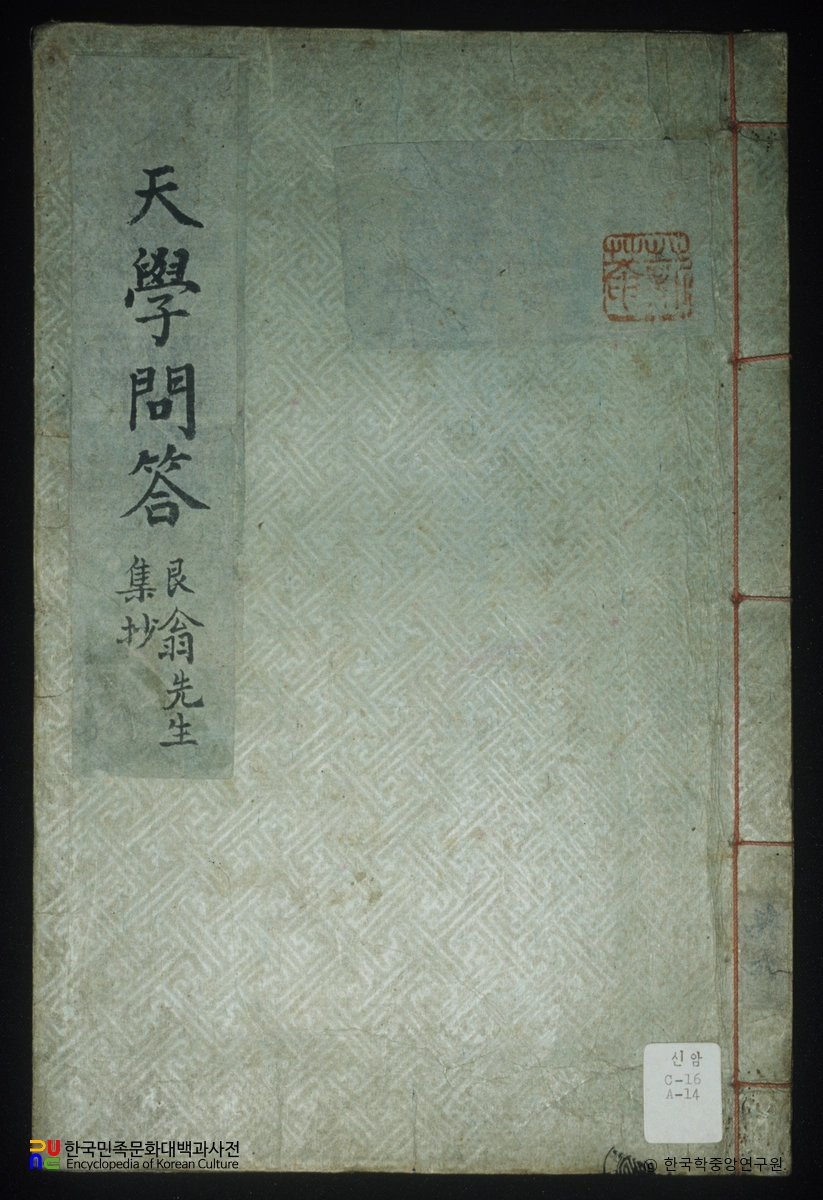 天學問答
艮翁先生
集抄
신암
C-16
A-14
한국민족문화대백과사전
Encyclopedia of Korean Culture
한국학중앙연구원.